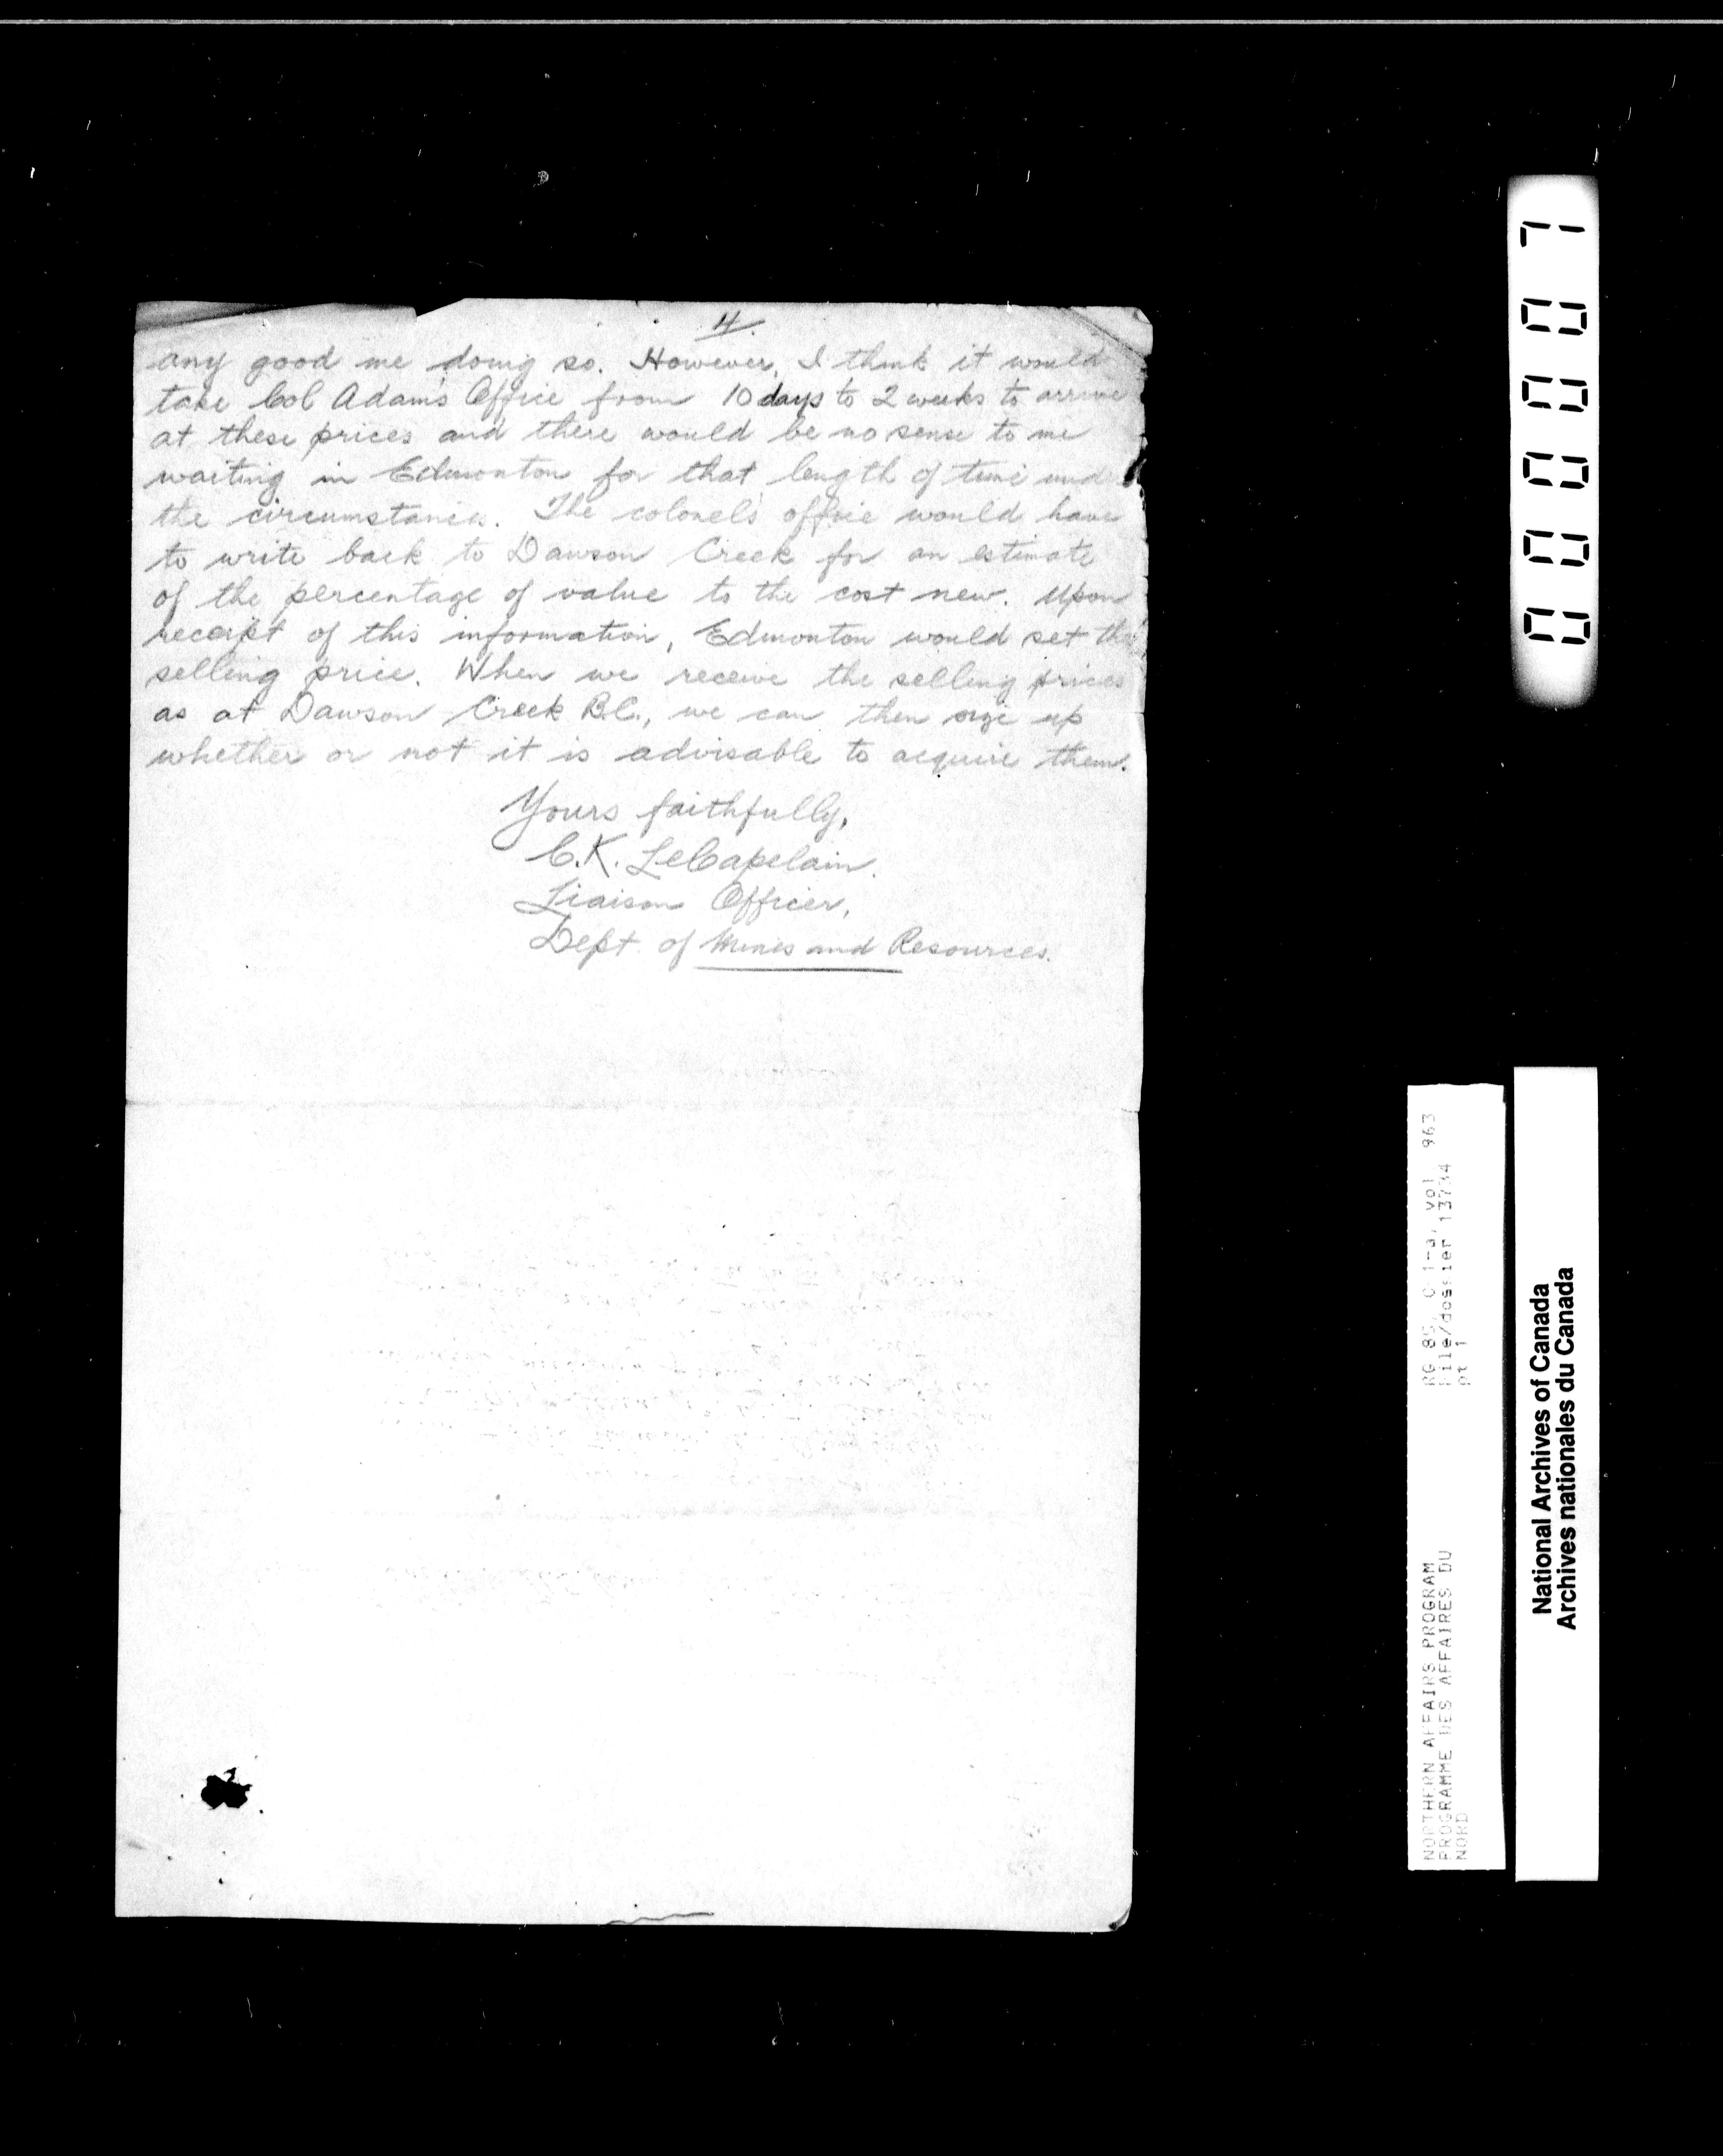 4.
any good me doing so. However, I think it would
take Col Adam's Office from 10 days to 2 weeks to arrive
at these prices and there would be no sense to me
waiting in Edmonton for that length of time under
the circumstances. The colonel's office would have
to write back to Dawson Creek for an estimate
of the percentage of value to the cost new. Upon
receipt of this information, Edmonton would set the
selling price. When we receive the selling prices
as at Dawson Creek B.C., we can then size up
whether or not it is advisable to acquire them.
Yours faithfully,
C.K. LeCapelain.
Liaison Officer,
Dept. of Mines and Resources.
000007
NORTHERN AFFAIRS PROGRAM
PROGRAMME DES AFFAIRES DU
NORD
RG 85, C 1-a, vol 963
File/dossier 13734
pt 1
National Archives of Canada
Archives nationales du Canada